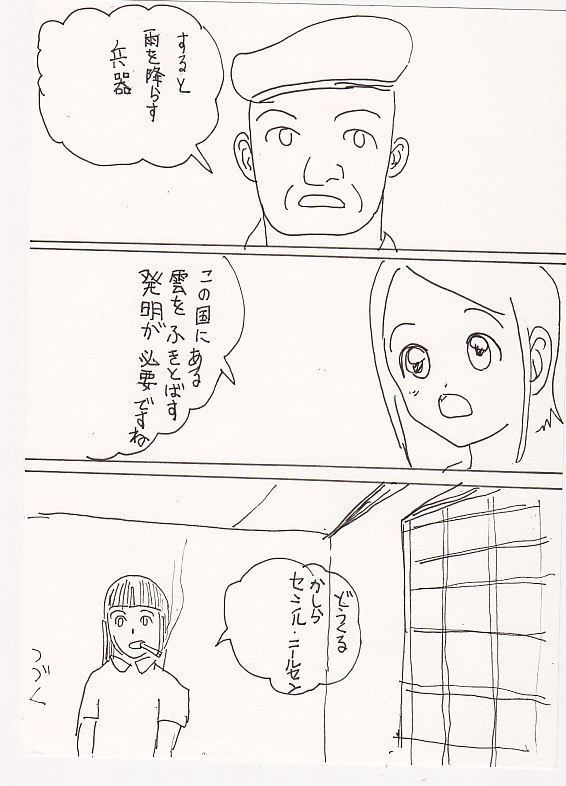 すると
雨を降らす
兵器
この国にある
雲をふきとばす
発明が必要ですね
どうくる
かしら
セシル・ニールセン
つづく